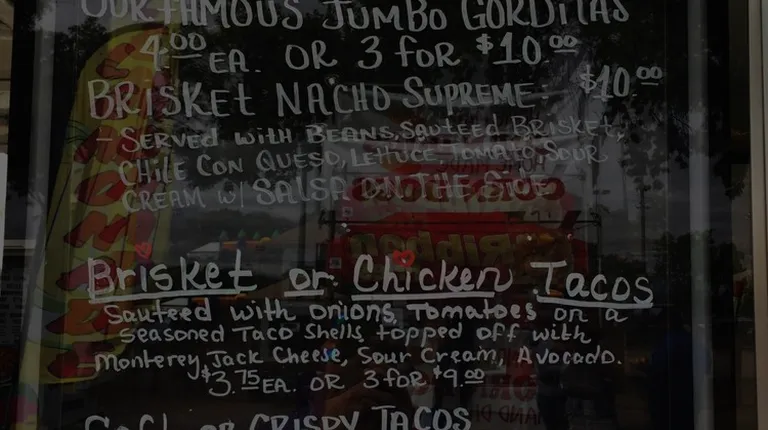 OUR FAMOUS JUMBO GORDITAS
4.00 EA. OR 3 FOR $10.00
BRISKET NACHO SUPREME: $10.00
- SERVED WITH BEANS, SAUTEED BRISKET,
CHILE CON QUESO, LETTUCE, TOMATO, SOUR
CREAM W/ SALSA ON THE SIDE
Brisket or Chicken Tacos
Sauteed with onions, Tomatoes on a
seasoned Taco Shells topped off with
Monterey Jack Cheese, Sour Cream, Avocado.
$3.75 EA. OR 3 FOR $9.00
OR CRISPY TACOS